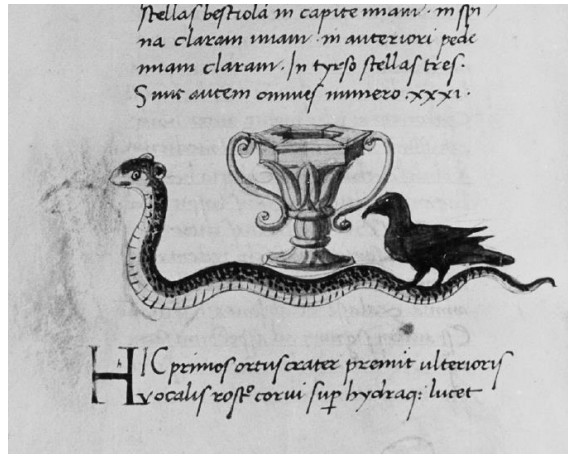 stellas bestiolā in capite unam · in spi
na claram unam · in anteriori pede
unam claram · In tyrso stellas tres ·
Sunt autem omnes numero · xxxi ·
HIC primos ortus crater premit ulterioris
vocalis rostro corvi sup hydraq: lucet